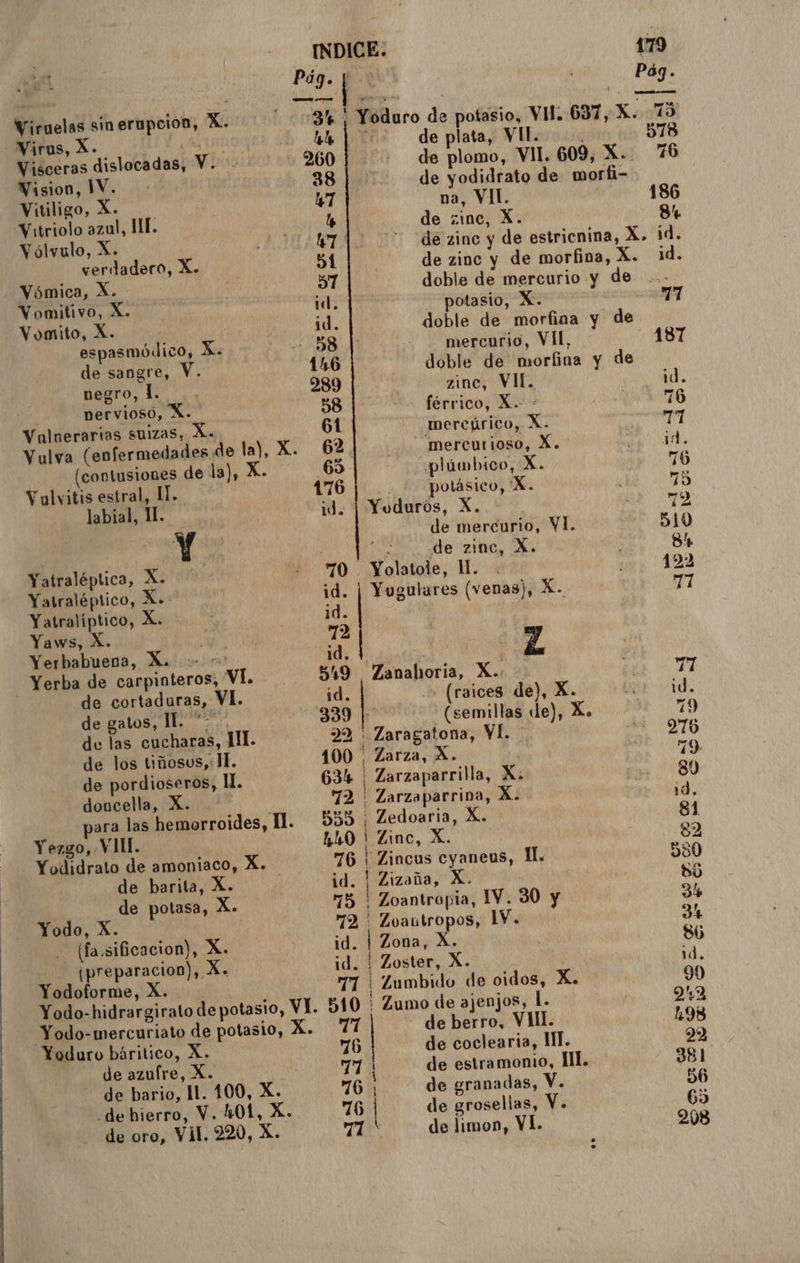 INDICE. 179
Pág.
Viruelas sin erupcion, X. 34
Virus, X. 44
Visceras dislocadas, V. 260
Vision, IV. 38
Vitiligo, X. 47
Vitriolo azul, III. 4
Vólvulo, X. 47
verdadero, X. 51
Vómica, X. 57
Vomitivo, X. id.
Vomito, X. id.
espasmódico, X. 58
de sangre, V. 146
negro, I. 289
nervioso, X. 58
Vulnerarias suizas, X. 61
Vulva (enfermedades de la), X. 62
(contusiones de la), X. 65
Vulvitis estral, II. 176
labial, II. id.
Y
Yatraléptica, X. 70
Yatraléptico, X. id.
Yatraliptico, X. id.
Yaws, X. 72
Yerbabuena, X. id.
Yerba de carpinteros, VI. 549
de cortaduras, VI. id.
de gatos, II. 339
de las cucharas, III. 22
de los tiñosos, II. 100
de pordioseros, II. 634
doncella, X. 72
para las hemorroides, II. 555
Yezgo, VIII. 440
Yodidrato de amoniaco, X. 76
de barita, X. id.
de potasa, X. 75
Yodo, X. 72
(falsificacion), X. id.
(preparacion), X. id.
Yodoforme, X. 77
Yodo-hidrargirato de potasio, VI. 510
Yodo-mercuriato de potasio, X. 77
Yoduro báritico, X. 76
de azufre, X. 77
de bario, II. 100, X. 76
de hierro, V. 401, X. 76
de oro, VII. 220, X. 77
Pág.
Yoduro de potasio, VII. 637, X. 75
de plata, VII. 578
de plomo, VII. 609, X. 76
de yodidrato de morfi-
na, VII. 186
de zinc, X. 84
de zinc y de estricnina, X. id.
de zinc y de morfina, X. id.
doble de mercurio y de
potasio, X. 77
doble de morfina y de
mercurio, VII, 187
doble de morfina y de
zinc, VII. id.
férrico, X. 76
mercúrico, X. 77
mercurioso, X. id.
plúmbico, X. 76
potásico, X. 75
Yoduros, X. 72
de mercurio, VI. 510
de zinc, X. 84
Yolatole, II. 122
Yugulares (venas), X. 77
Z
Zanahoria, X. 77
(raices de), X. id.
(semillas de), X. 79
Zaragatona, VI. 276
Zarza, X. 79
Zarzaparrilla, X. 80
Zarzaparrina, X. id.
Zedoaria, X. 81
Zinc, X. 82
Zincus cyaneus, II. 550
Zizaña, X. 86
Zoantropia, IV. 30 y 34
Zoantropos, IV. 34
Zona, X. 86
Zoster, X. id.
Zumbido de oidos, X. 90
Zumo de ajenjos, I. 242
de berro, VIII. 498
de coclearia, III. 22
de estramonio, III. 381
de granadas, V. 56
de grosellas, V. 65
de limon, VI. 208